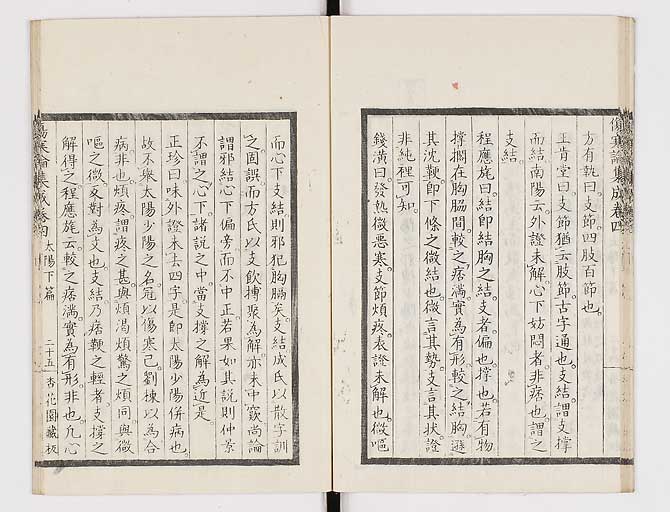 方有執曰。支節。四肢百節也。
王肯堂曰。支節猶云肢節。古字通也。支結。謂支撐
而結。南陽云。外證未解。心下妨悶者。非痞也。謂之
支結。
程應旄曰。結即結胸之結。支者。偏也。撐也。若有物
撐擱在胸脇間。較之痞滿。實為有形。較之結胸。遜
其沈鞕。即下條之微結也。微言其勢。支言其狀。證
非純裡。可知。
錢潢曰。發熱微惡寒。支節煩疼。表證未解也。微嘔
傷寒論集成卷四
而心下支結。則邪犯胸膈矣。支結成氏以散字訓
之固誤。而方氏以支飲摶聚為解。亦未中窾。尚論
謂邪結心下偏旁。而不中正。若果如其說。則仲景
不謂之心下。諸說之中。當支撐之解為近是。
正珍曰。味外證未去四字。是即太陽少陽併病也。
故不舉太陽少陽之名。冠以傷寒已。劉棟以為合
病非也。煩疼。謂疼之甚。與煩渴煩驚之煩同。與微
嘔之微。反對為文也。支結乃痞鞕之輕者。支撐之
解得之。程應旄云。較之痞滿。實為有形。非也。凡心
傷寒論集成卷四 太陽下篇 二十五 杏花園藏板